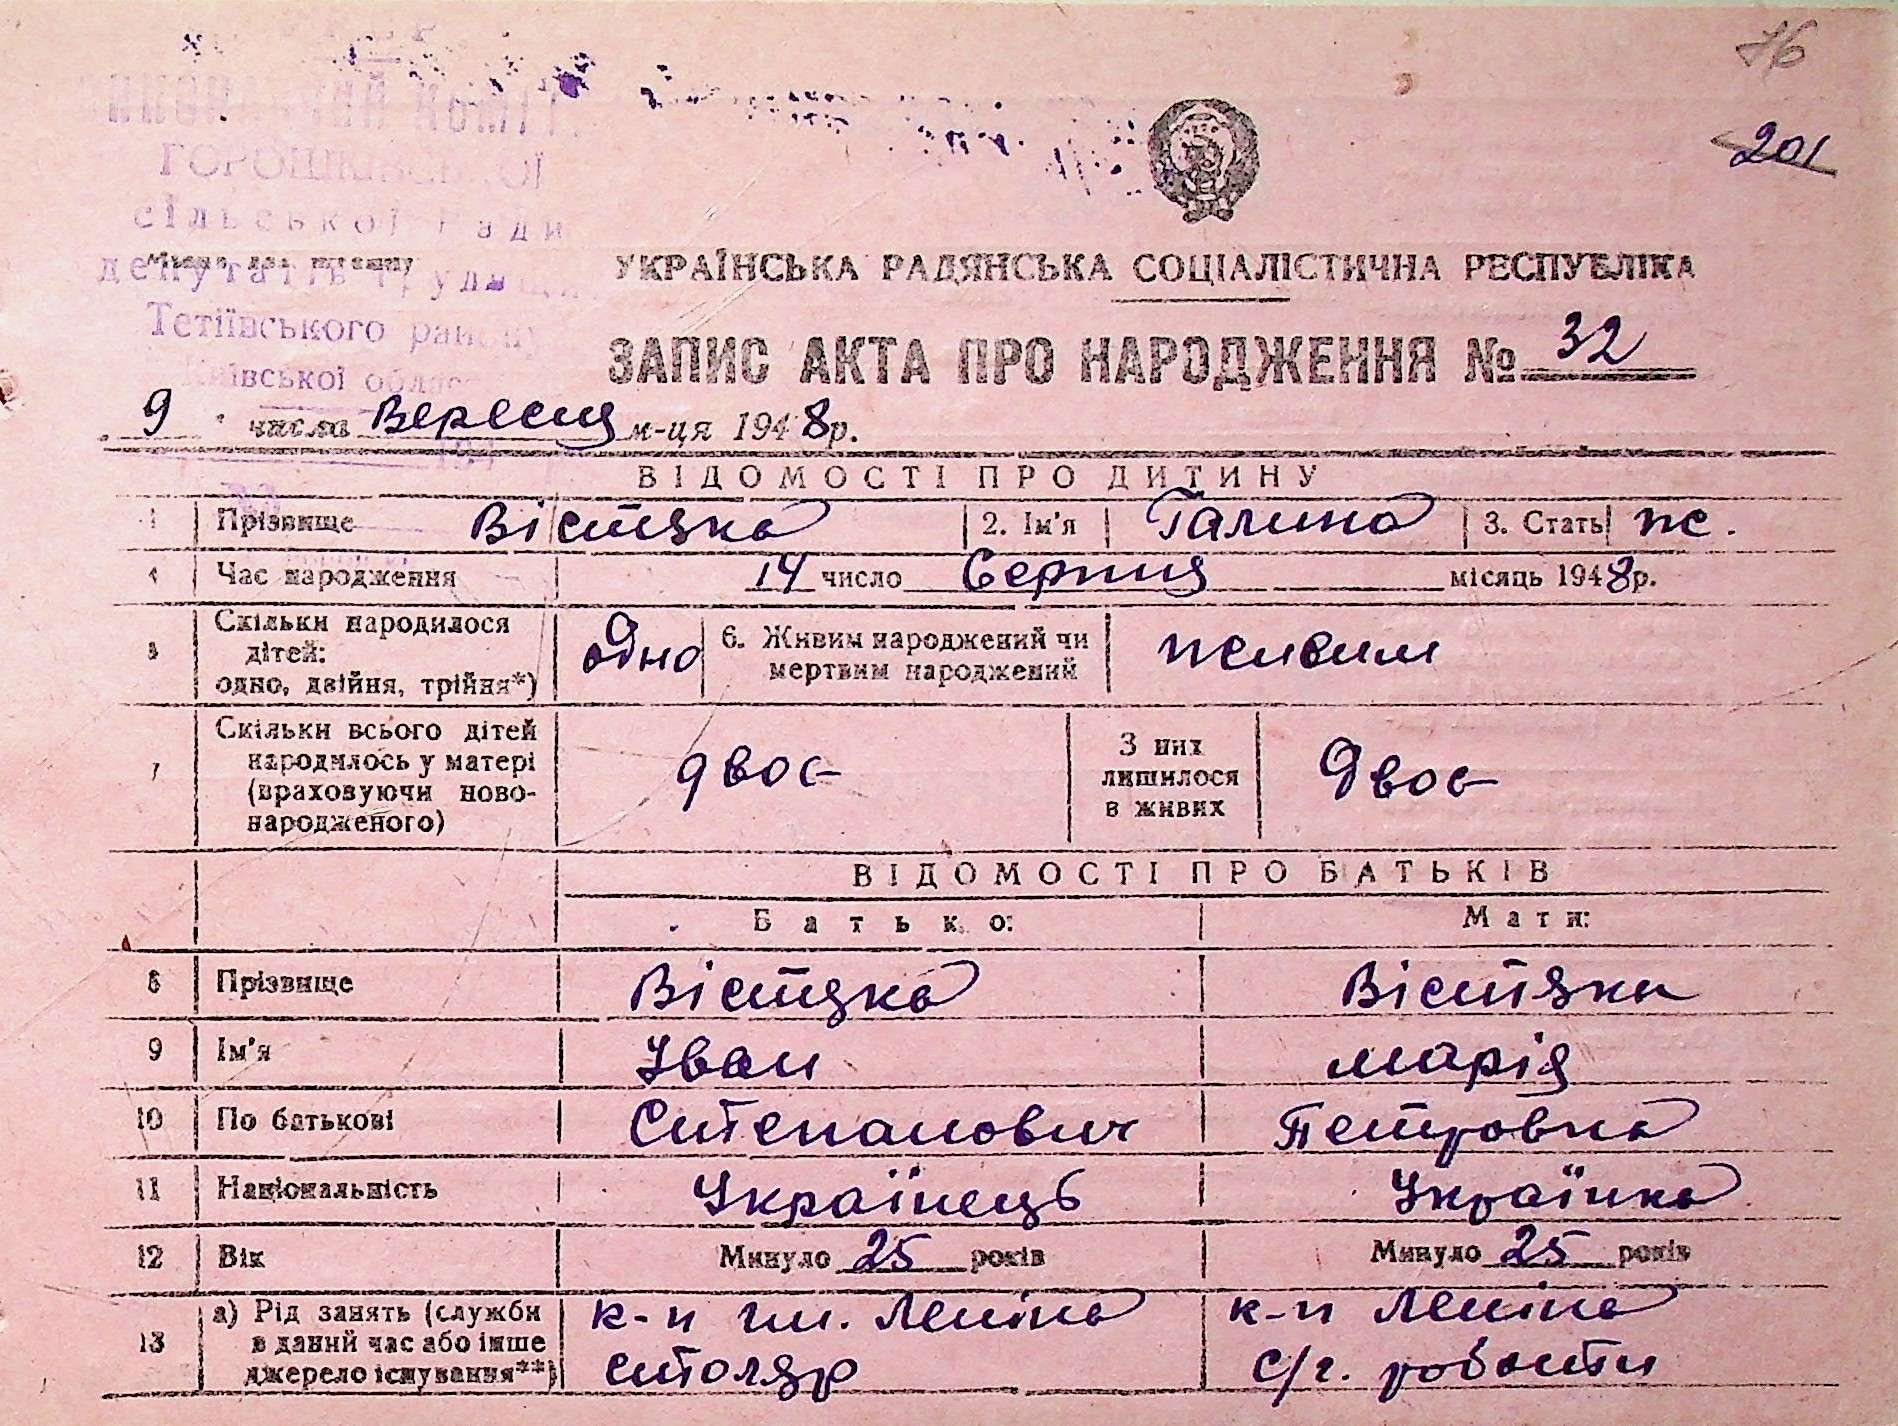 76
201
ГОРОШКІВСЬКОЇ
сільської Ради
депутатів трудящих
Місце для штампу
Тетіївського району
Київської області
УКРАЇНСЬКА РАДЯНСЬКА СОЦІАЛІСТИЧНА РЕСПУБЛІКА
ЗАПИС АКТА ПРО НАРОДЖЕННЯ № 32
9 числа Вересня м-ця 1948 р.
ВІДОМОСТІ ПРО ДИТИНУ
1 Прізвище Вістяка 2. Ім'я Галина 3. Стать ж.
4 Час народження 14 число Серпня місяць 1948 р.
5 Скільки народилося дітей: одно, двійня, трійня*) Одно 6. Живим народжений чи мертвим народжений живим
7 Скільки всього дітей народилось у матері (враховуючи новонародженого) двоє З них лишилося в живих Двоє
ВІДОМОСТІ ПРО БАТЬКІВ
Батько: Мати:
8 Прізвище Вістяка Вістяка
9 Ім'я Іван Марія
10 По батькові Степанович Петровна
11 Національність Українець Українка
12 Вік Минуло 25 років Минуло 25 років
13 а) Рід занять (служби в даний час або інше джерело існування**) к-п ім. Леніна столяр к-п Леніна с/г. роботи